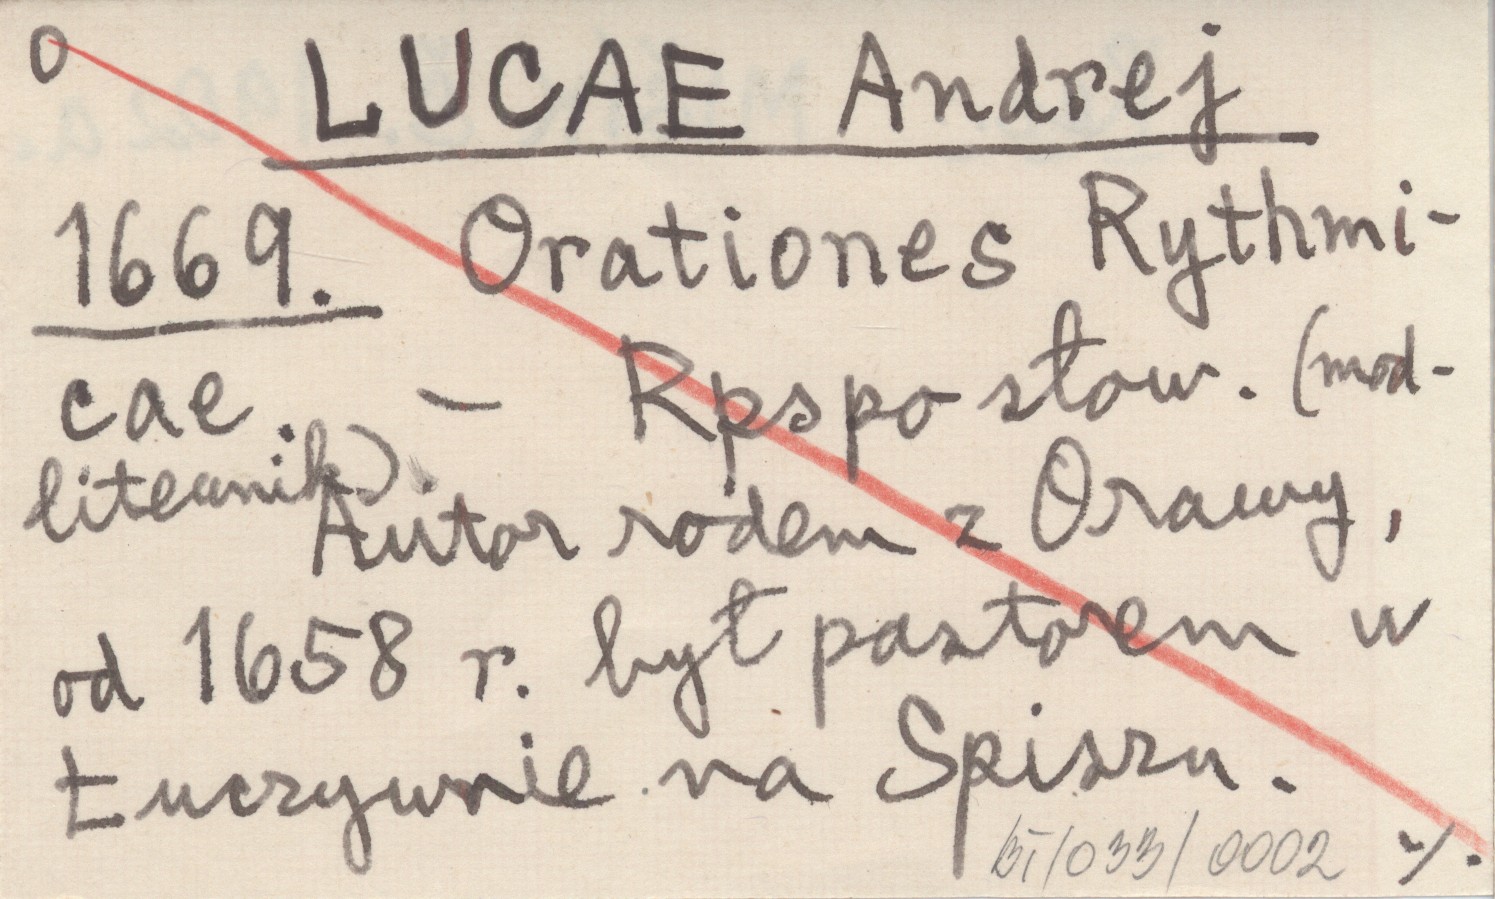 O LUCAE Andrej
1669. Orationes Rythmi-
cae. — Rps po słow. (mod-
litewnik).
Autor rodem z Orawy,
od 1658 r. był pastorem w
Łuczywnie na Spiszu.
BI/033/0002 ./.